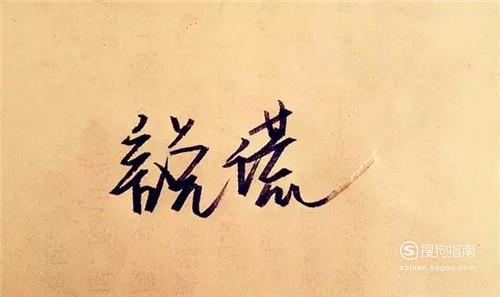 説谎
搜狗指南
zhinan.sogou.com